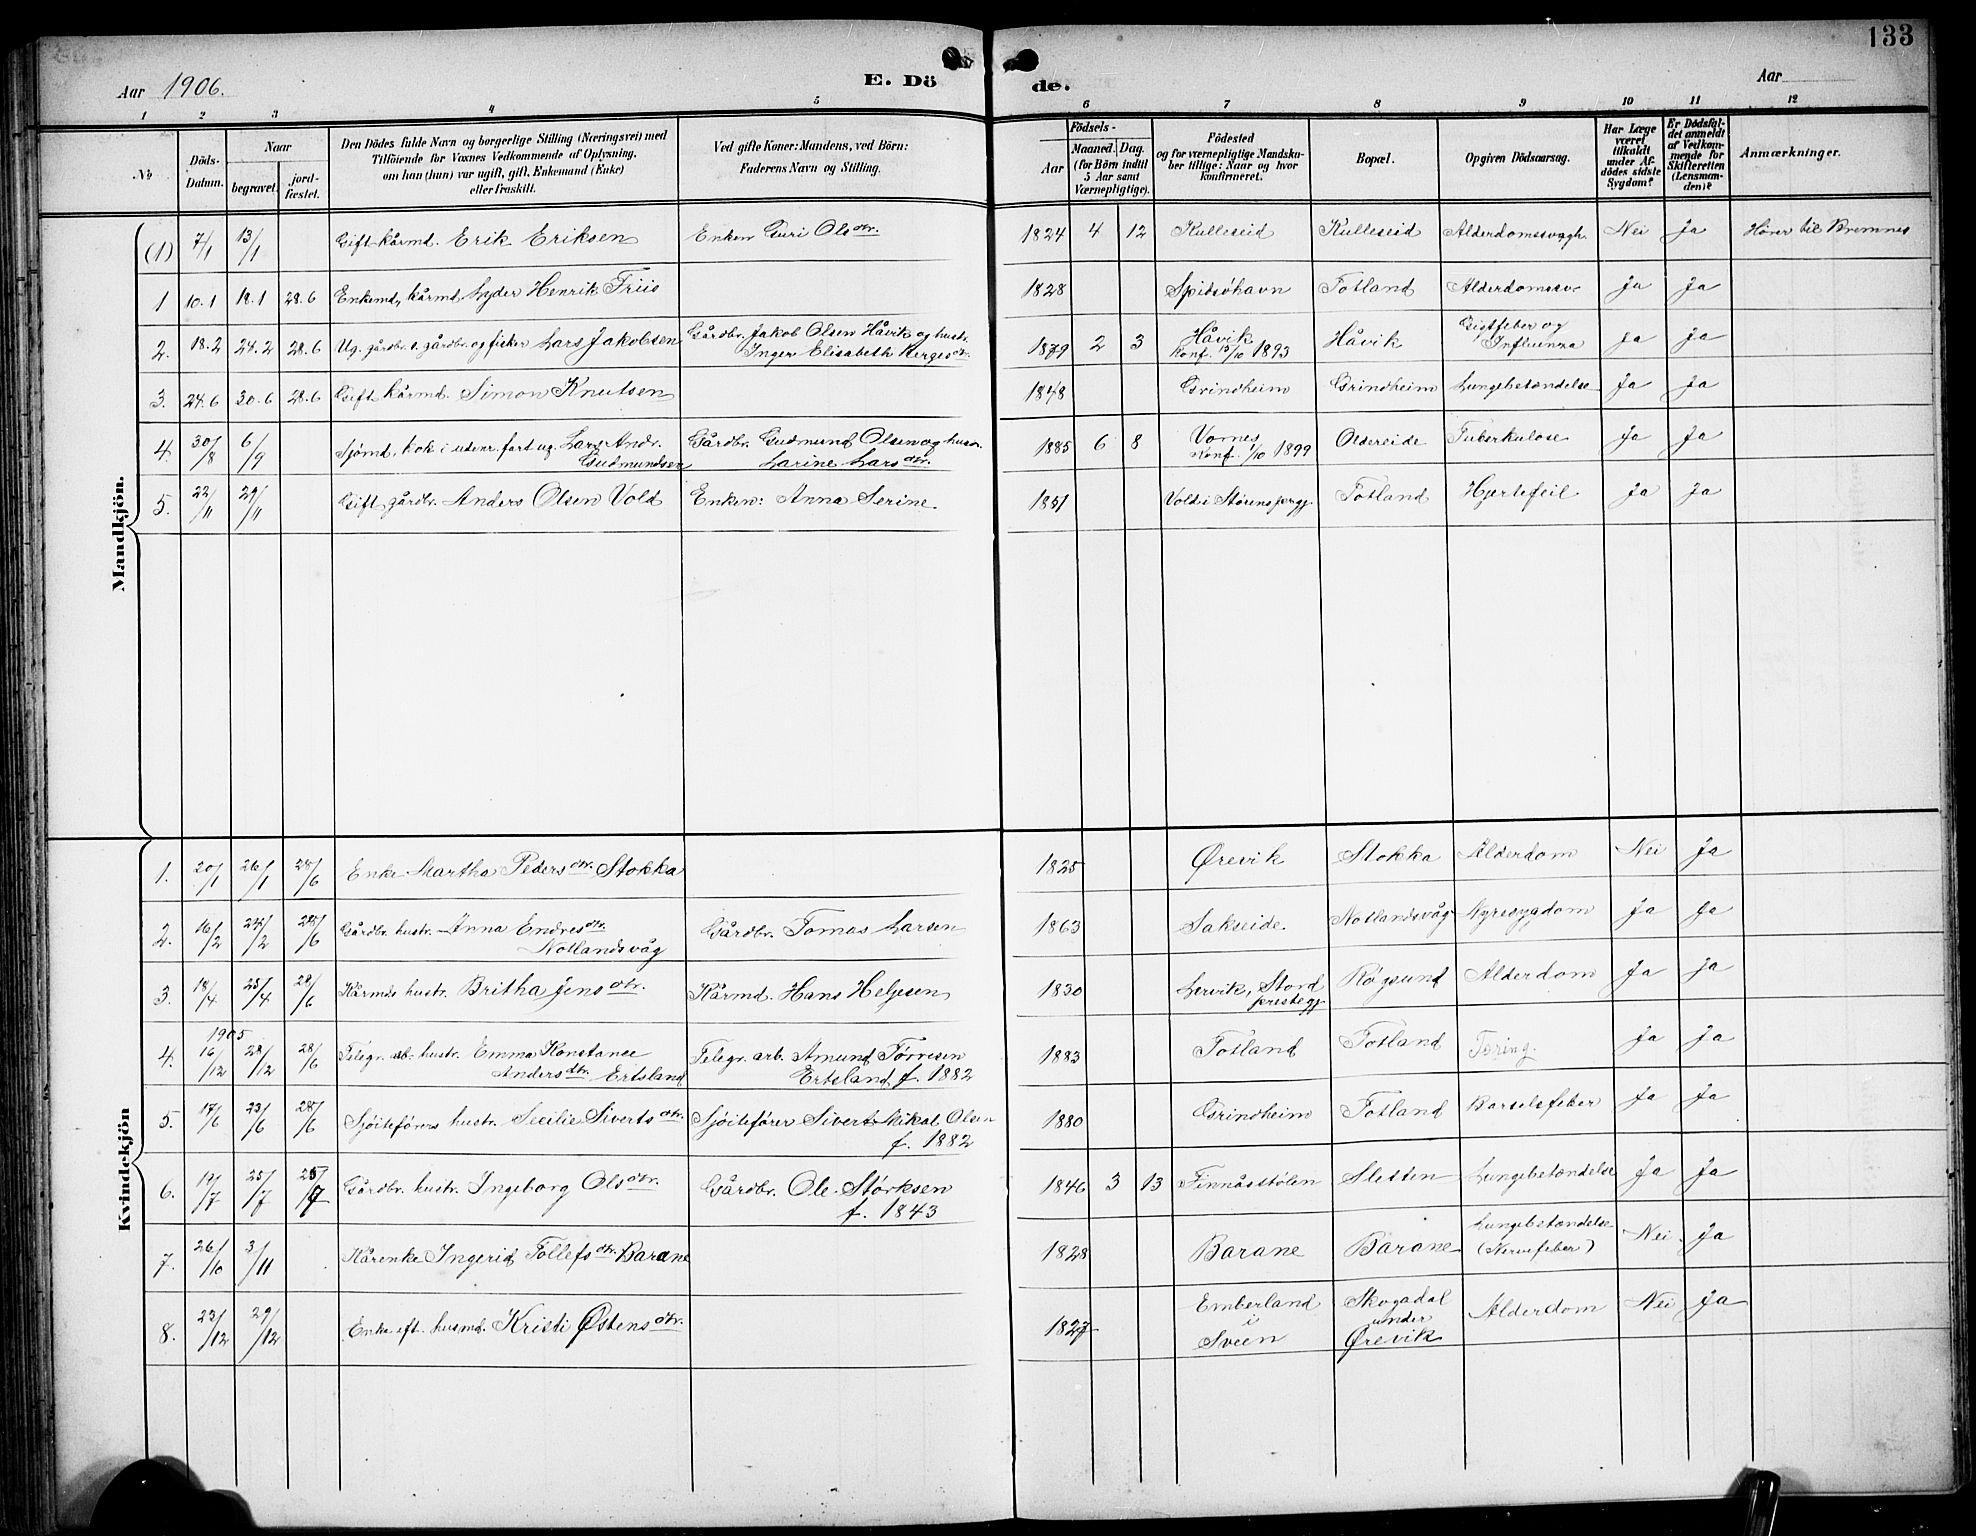 133
Aar 1906.
E. Dö
de.
Aar
1 2 3 4 5 6 7 8 9 10 11 12
No
Döds-Datum.
Naar
begravet.
jordfæstet.
Den Dödes fulde Navn og borgerlige Stilling (Næringsvei) med
Tilföiende for Voxnes Vedkommende af Oplysning,
om han (hun) var ugift, gift, Enkemand (Enke)
eller fraskilt.
Ved gifte Koner: Mandens, ved Börn:
Faderens Navn og Stilling.
Födsels-
Aar
Maaned. Dag.
(for Börn indtil
5 Aar samt
Værnepligtige).
Födested
og for værnepligtige Mandskaber tillige: Naar og hvor
konfirmeret.
Bopæl.
Opgiven Dödsaarsag.
Har Læge
været
tilkaldt
under Afdödes sidste
Sygdom?
Er Dödsfaldet anmeldt
af Vedkommende for
Skifteretten
(Lensmanden)?
Anmærkninger.
Mandkjön.
(1) 7/1 13/1 Gift kårmd. Erik Eriksen Enken Guri Olsdtr. 1824 4 12 Kulleseid Kulleseid Alderdomssvagh. Nei Ja Hörer til Bremnes
1 10.1 18.1 28.6 Enkemd, kårmd. Lyder Henrik Friis 1828 Spidsøhavn Totland Alderdomssv. Ja Ja
2. 18.2 24.2 28.6 Ug. gårdbr. s. gårdbr. og fisker Lars Jakobsen Gårdbr. Jakob Olsen Håvik og hustr. 1879 2 3 Håvik Håvik Gigtfeber og Ja Ja
Inger Elisabeth Konf. 15/10 1893 Influenza
3. 24.6 30.6 28.6 Gift kårmd. Simon Knutsen 1848 Grindheim Grindheim Lungebetændelse Ja Ja
4. 30/8 6/9 Sjømd, kok i udenr. fart ug. Lars Andr. Gårdbr. Gudmund Olsen og husr. 1885 6 8 Vornes Oldereide Tuberkulose Ja Ja
Gudmundsen Larine Larsdtr. Konf. 1/10 1899
5. 22/11 29/11 Gift, gårdbr. Anders Olsen Vold Enken: Anna Serine. 1851 Vold i Størens prgj. Totland Hjertefeil Ja Ja
Kvindekjön
1. 20/1 26/1 28/6 Enke Martha Pedersdtr. Stokka 1825 Ørevik Stokka Alderdom Nei Ja
2. 16/2 24/2 28/6 Gårdbr. hustr. Anna Endresdtr. Gårdbr. Tomas Larsen 1863 Sakseide. Notlandsvåg Nyresygdom Ja Ja
Notlandsvåg
3. 18/4 25/4 28/6 Kårmds hustr. Britha Jensdtr. Kårmd. Hans Helgesen 1830 Lervik, Stord Røgsund Alderdom Ja Ja
prestegj.
1905
4. 16/12 28/12 28/6 Telegr. arb. hustr. Emma Konstance Telegr. arb. Amund Tørresen 1883 Totland Totland Tæring. Ja Ja
Andersdtr. Ertsland Ertsland f. 1882
5. 17/6 23/6 28/6 Sjøiteførers hustr. Secilie Sivertsdtr. Sjøitefører Sivert Mikal Olsen 1880 Grindheim Totland Barselsfeber Ja Ja
f. 1882
6. 19/7 25/7 25/7 Gårdbr. hustr. Ingeborg Olsdtr. Gårdbr. Ole Størksen 1846 3 13 Finnåsstølen Sletten Lungebetændelse Ja Ja
f. 1843
7. 26/10 3/11 Kårenke Ingerid Tollefsdtr. Barane 1828 Barane Barane Lungebetændelse Nei Ja
(Nervefeber)
8. 23/12 29/12 Enke eft. husmd. Kristi Østensdtr. 1827 Emberland Skogadal Alderdom Nei Ja
i under
Sveen Ørevik